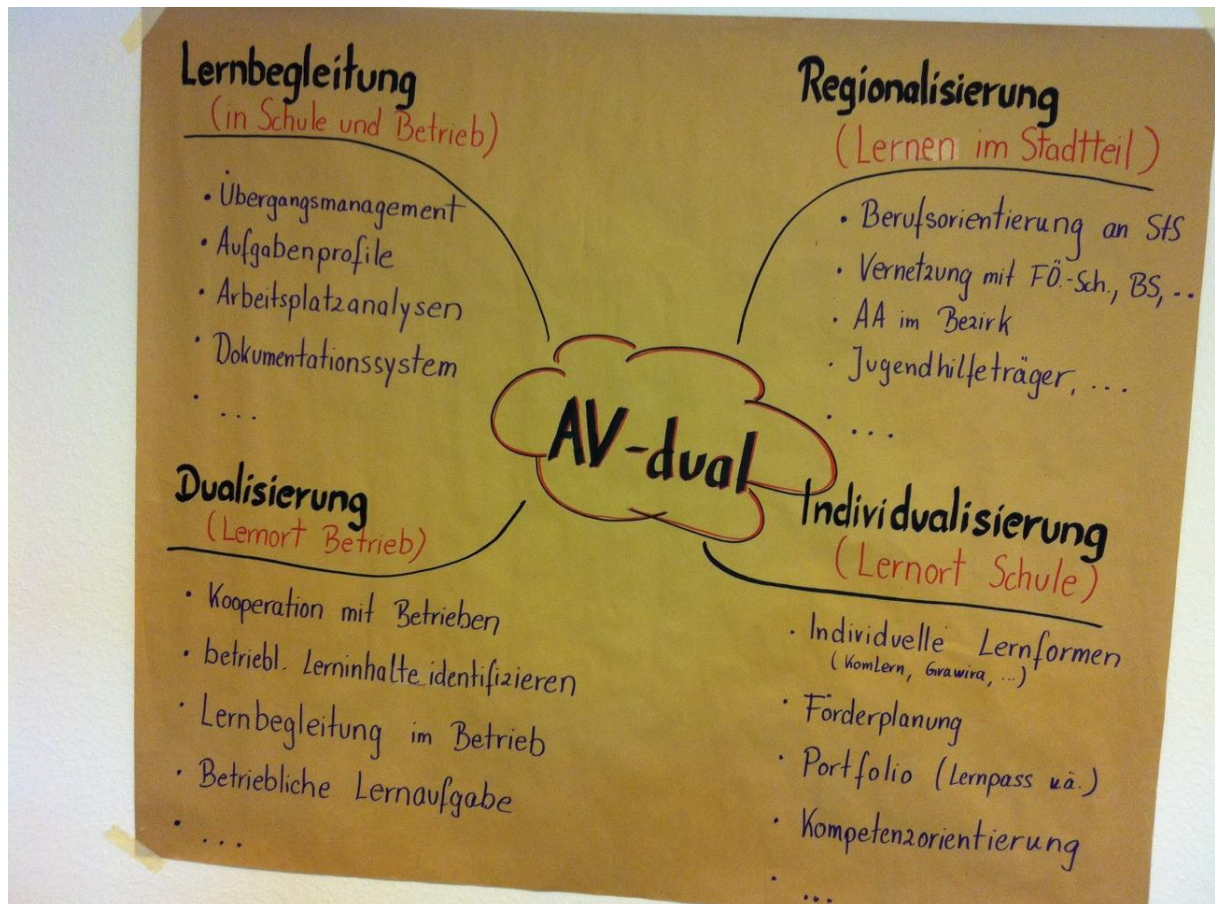 Lernbegleitung
(in Schule und Betrieb)
· Übergangsmanagement
· Aufgabenprofile
· Arbeitsplatzanalysen
· Dokumentationssystem
· ...
Regionalisierung
(Lernen im Stadtteil)
· Berufsorientierung an StS
· Vernetzung mit FÖ.-Sch., BS, ..
· AA im Bezirk
· Jugendhilfeträger, ...
· ...
AV-dual
Dualisierung
(Lernort Betrieb)
· Kooperation mit Betrieben
· betriebl. Lerninhalte identifizieren
· Lernbegleitung im Betrieb
· Betriebliche Lernaufgabe
· ...
Individualisierung
(Lernort Schule)
· Individuelle Lernformen
(KomLern, Grawira, ...)
· Förderplanung
· Portfolio (Lernpass uä.)
· Kompetenzorientierung
· ...